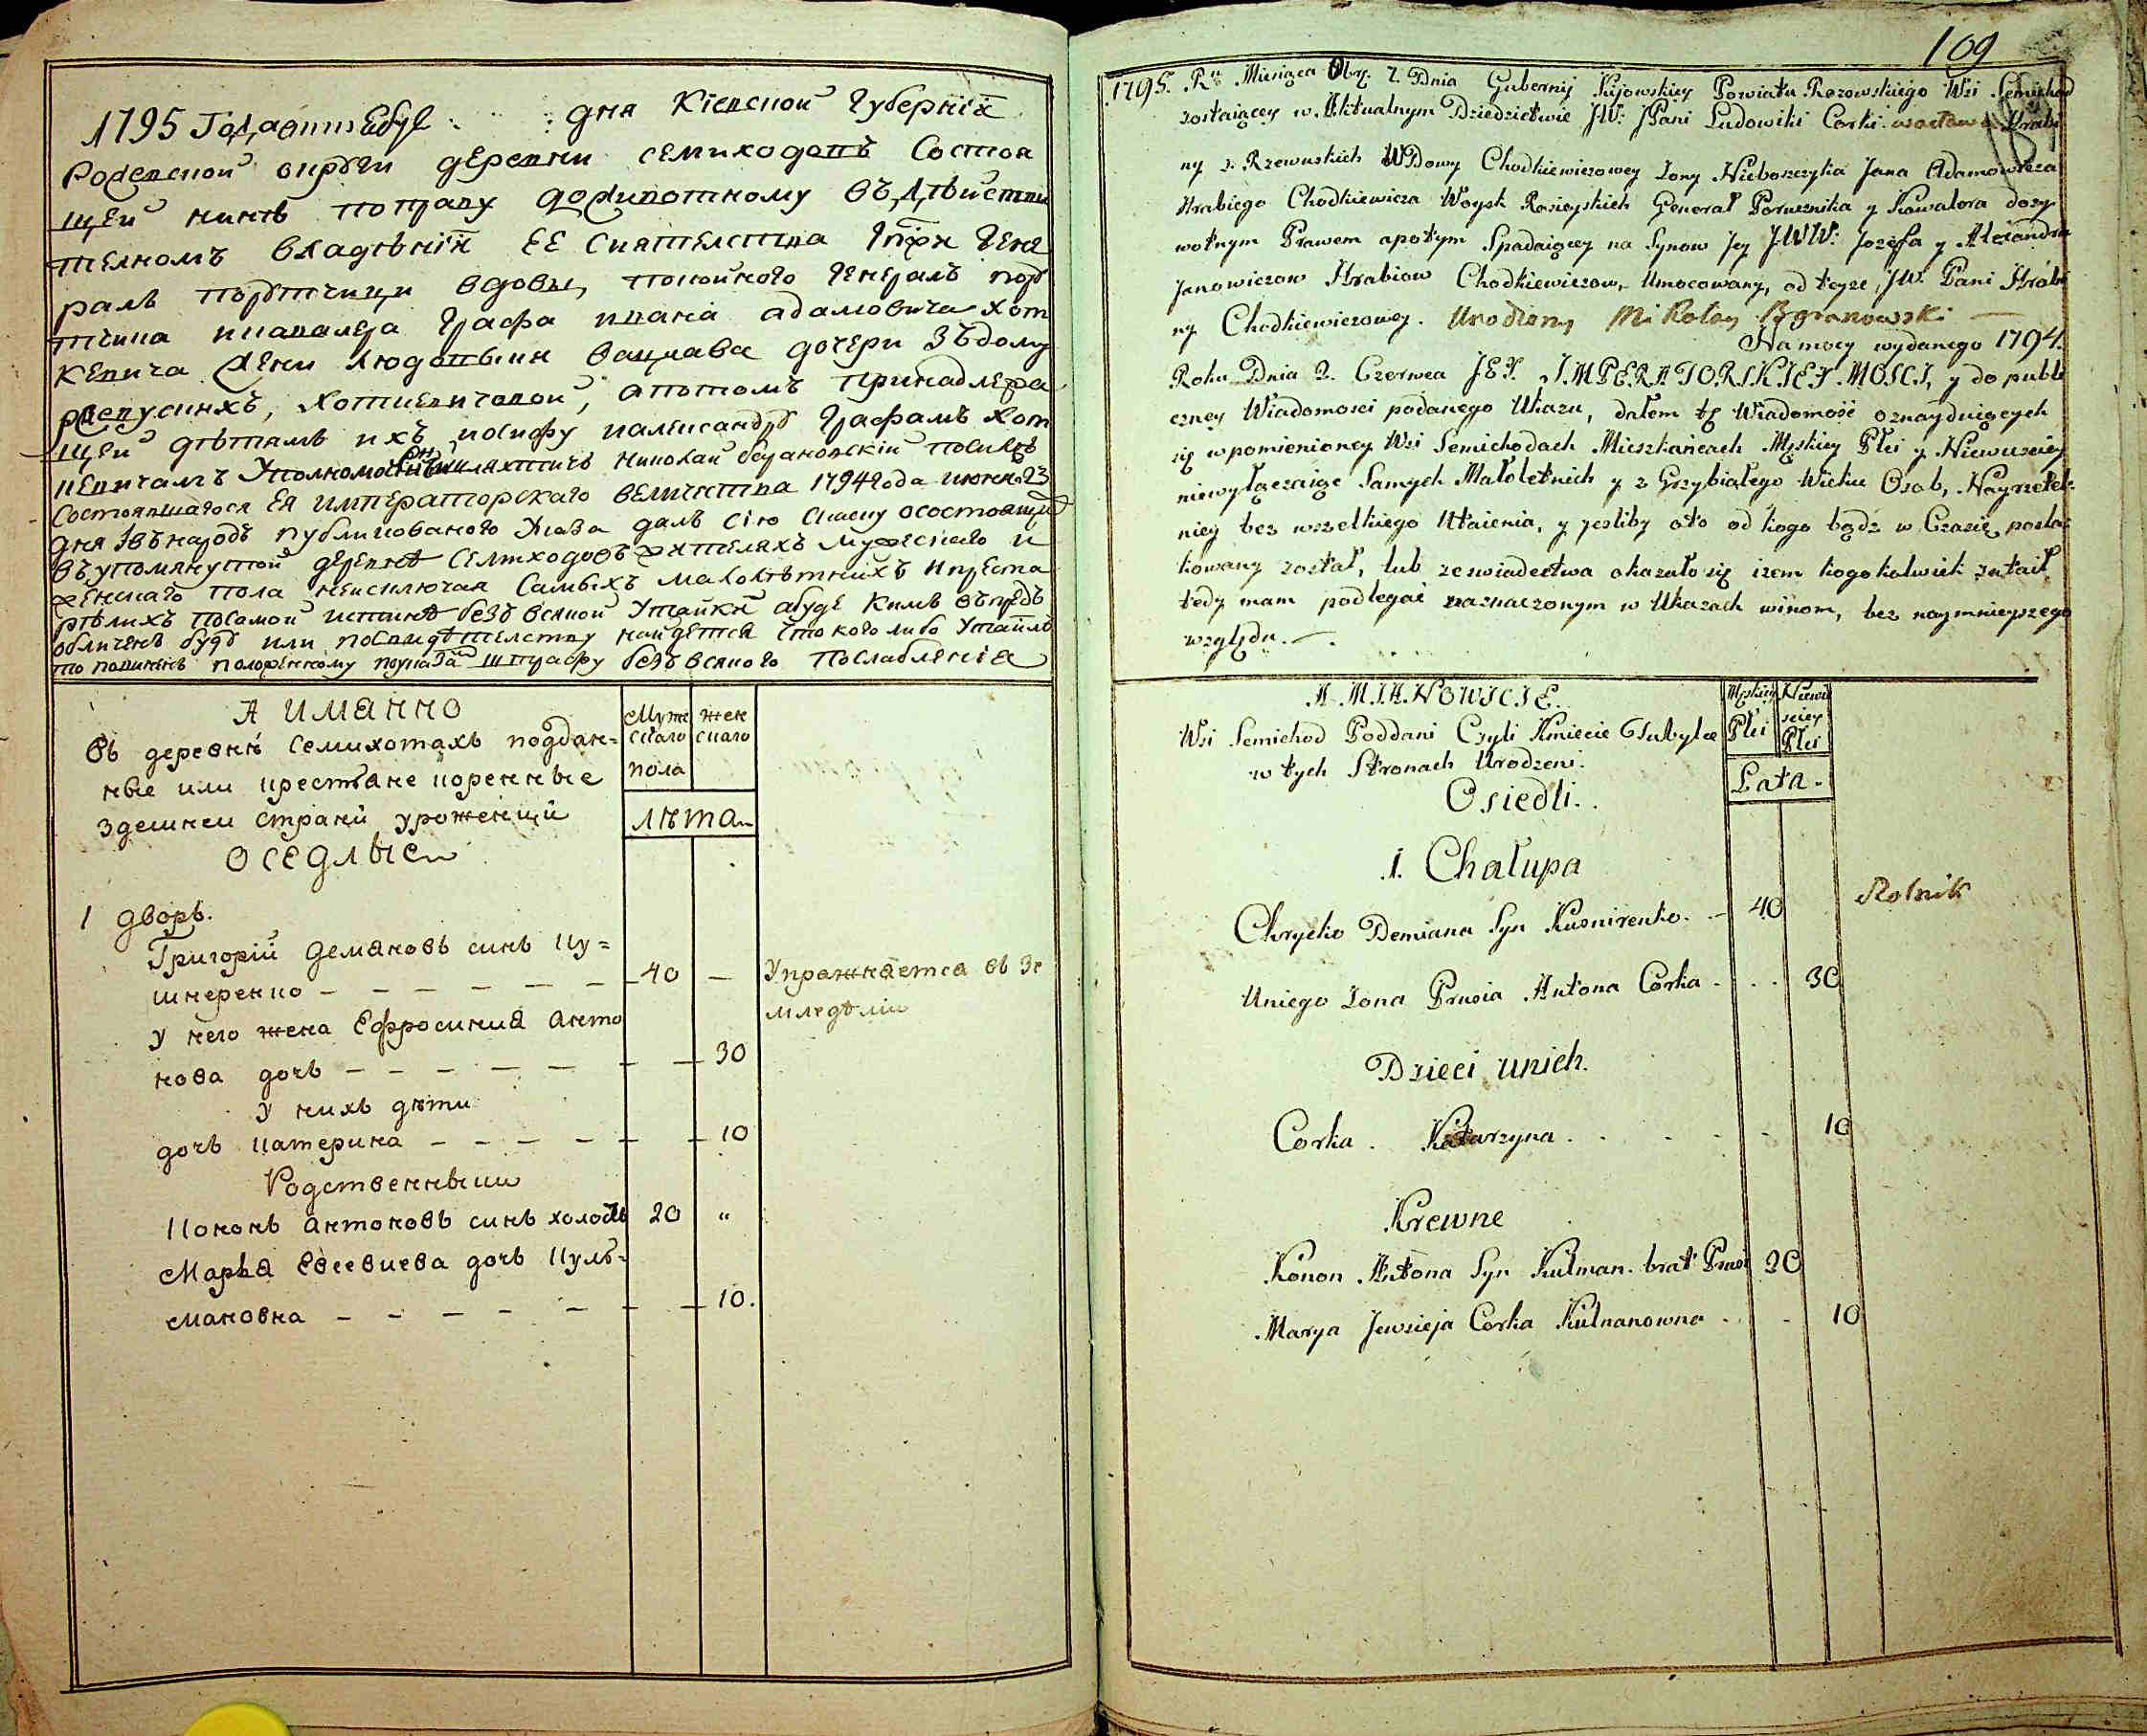 1795 Года октебря дня Кіевской Губерніи
Росевской округи деревни семиходовъ Состоя
щей нинѣ поправу доживотному въ дѣйстви
телномъ владѣніи ЕЕ Сиятелства Гене
ралъ порутчици вдовы, покойного генералъ пору
тчика икавалера Графа ивана адамовича хот
кевича жены людовыки вацлава дочери Зъдому
ржевускихъ, хоткевичовой, апотомъ принадлежа
щей дѣтямъ ихъ иосифу иалександру Графамъ хот
кевичамъ Уполномоченный шляхтичъ николай бодановскій посилѣ
Состоявшагося ЕЯ императорскаго величества 1794 года июня 23
дня въ народъ публикованого Указа далъ сію скаску осостоящих
въ упомянутой деревнѣ Семиходовъ жителяхъ мужескаго и
женскаго пола неисключая самыхъ малолѣтнихъ ипреста
рѣлихъ посамой истинѣ безъ всякой Утайки абуде кимъ въпредь
обличенъ буду или посвидѣтелству найдется что кого либо Утаилъ
то повиненъ положенному штрафу безъ всякого послабленія
А имянно
Въ деревнѣ Семихотахъ поддан=
ные или престьяне коренные
здешней страны уроженцы
оседлые
Мужескаго пола
женскаго
лѣта
1 дворъ.
Григорій Демяновъ синъ Ку=
шнеренко — — — — — — 40 — Упражняется въ Зе
мледѣліи
У него жена Ефросиния Анто
нова дочь — — — — — — — 30
У нихъ дѣти
дочь Катерина — — — — — — 10
Родственныки
Кононъ Антоновъ синъ холостъ 20 "
Марья Евсевиева дочь Куль=
мановна — — — — — — — 10.
109
1795. Ru Miesiąca 8bra. 7. Dnia Gubernij Kijowskiey Powiatu Wsi Semichod
zostaiącey w Aktualnym Dziedzictwie JW: JPani Ludowiki Corki wacława Hrabi
ny z Rzewuskich WDowy Chodkiewiczowey Zony Nieboszczyka Jana Adamowicza
Hrabiego Chodkiewicza Woysk Rosieyskich Generał Porucznika y Kawalora dozy
wotnym Prawem apotym Spadaiącey na Synow Jey JWW: Jozefa y Alexandra
Janowiczow Hrabiow Chodkiewiczow, Umocowany, od teyze, JW. Pani Hrabi
ny Chodkiewiczowey. Urodzony Mikołay Bogranowski —
Na mocy wydanego 1794.
Roku Dnia 2. Czerwca JEY. IMPERATORSKIEY MOSCI, y do publi
czney Wiadomosci podanego Ukazu, dałem tę Wiadomość oznayduiących
się wpomienioney Wsi Semichodach Mieszkańcach Męskiey Płci y Niewiesciey
niewyłączaiąc Samych Małoletnich y z Grzybiałego Wieku Osob, Nayrzetel-
niey bez wszelkiego Utaienia, y jesliby oto od kogo bądź w Czasie poszla-
kowany został, lub zeswiadectwa okazało się izem kogokolwiek zataił,
tedy mam podlegać naznaczonym w Ukazach winom, bez naymnieyszego
względu. —
A MIANOWICIE.
Wsi Semichod Poddani Czyli Kmiecie Tubylce
w tych Stronach Urodzeni.
Męskiey Płci
Niewiesciey Płci
Lata.
Osiedli.
1. Chałupa
Chrycko Demiana Syn Kusnirenko. — 40 Rolnik
Uniego Zona Prusia Antona Corka . . . 30
Dzieci unich.
Corka . Katarzyna . . . - - 10
Krewne
Konon Antona Syn Kulman. brat Prusi 20
Marya Jewsieja Corka Kulmanowna . . - 10